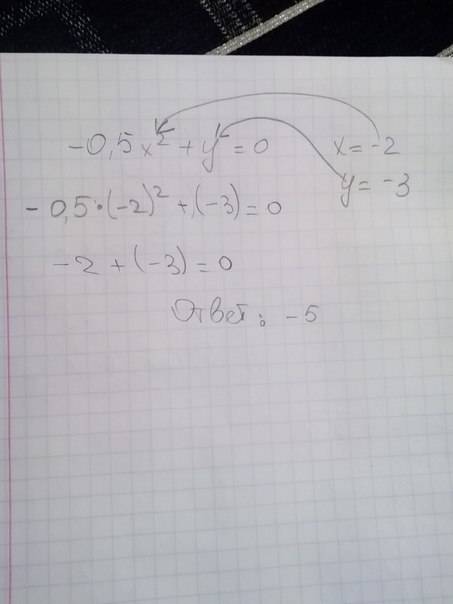 -0,5x² + y = 0 x = -2
y = -3
-0,5·(-2)² + (-3) = 0
-2 + (-3) = 0
Ответ: -5